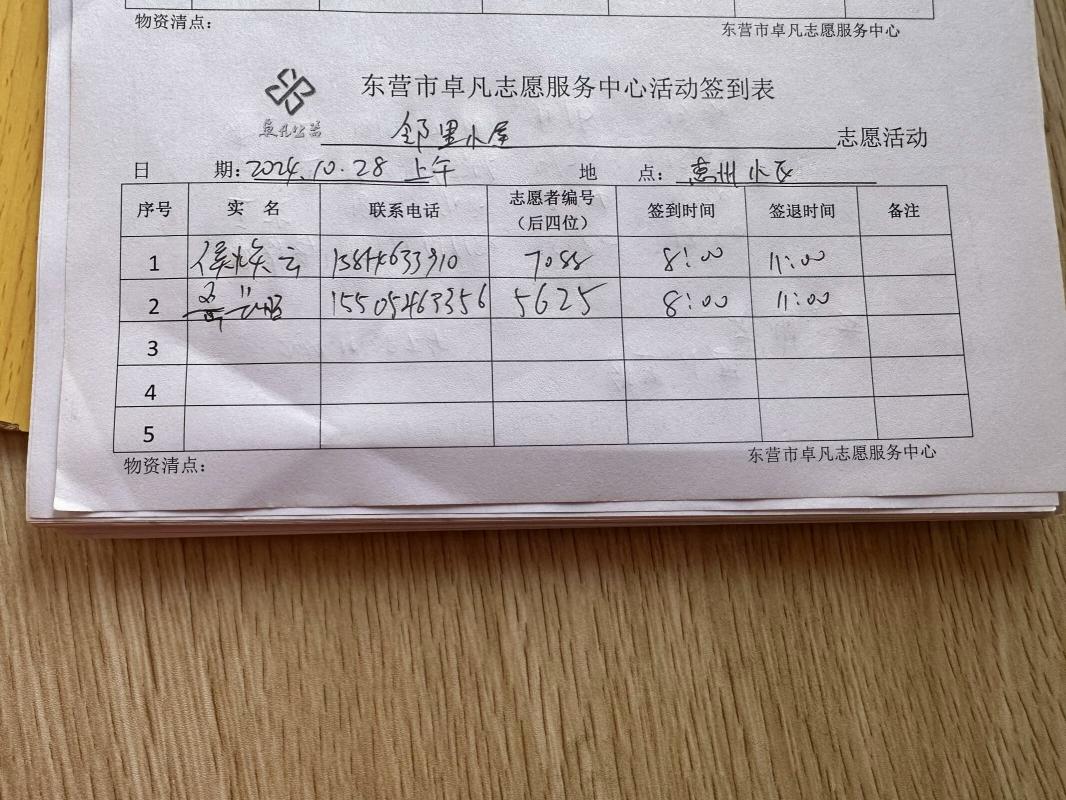 物资清点：
东营市卓凡志愿服务中心
东营市卓凡志愿服务中心活动签到表
卓凡公益
邻里小屋 志愿活动
日 期：2024.10.28 上午 地 点：惠州小区
序号 实 名 联系电话 志愿者编号（后四位） 签到时间 签退时间 备注
1 侯焕云 7088 8:00 11:00
2 15505463356 5625 8:00 11:00
3
4
5
物资清点：
东营市卓凡志愿服务中心